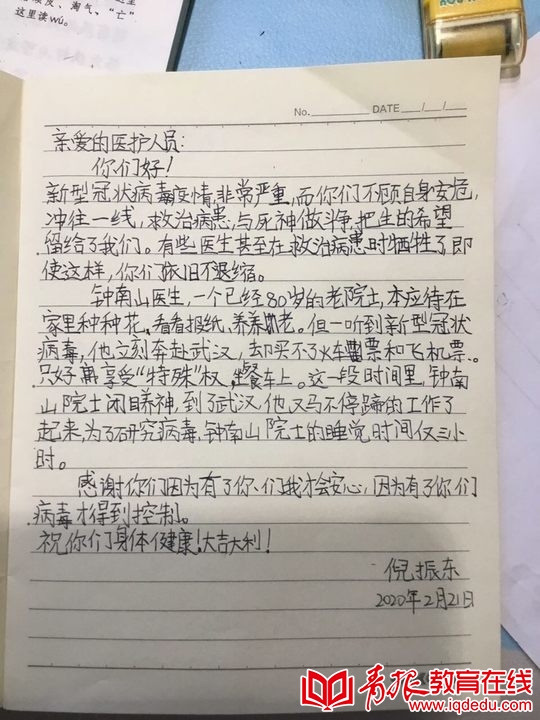 皮、淘气。“亡”
这里读wú。
No. DATE / /
亲爱的医护人员:
你们好!
新型冠状病毒疫情非常严重,而你们不顾自身安危,
冲往一线,救治病患,与死神做斗争,把生的希望
留给了我们。有些医生甚至在救治病患时牺牲了,即
使这样,你们依旧不退缩。
钟南山医生,一个已经80岁的老院士,本应待在
家里种种花,看看报纸,养养老。但一听到新型冠状
病毒,他立刻奔赴武汉,却买不了火车票和飞机票。
只好享受“特殊”权,坐餐车上。这一段时间里,钟南
山院士闭目养神,到了武汉,他又马不停蹄的工作了
起来,为了研究病毒,钟南山院士的睡觉时间仅三小
时。
感谢你们因为有了你们我才会安心,因为有了你们
病毒才得到控制。
祝你们身体健康!大吉大利!
倪振东
2020年2月21日
青报教育在线
www.iqdedu.com